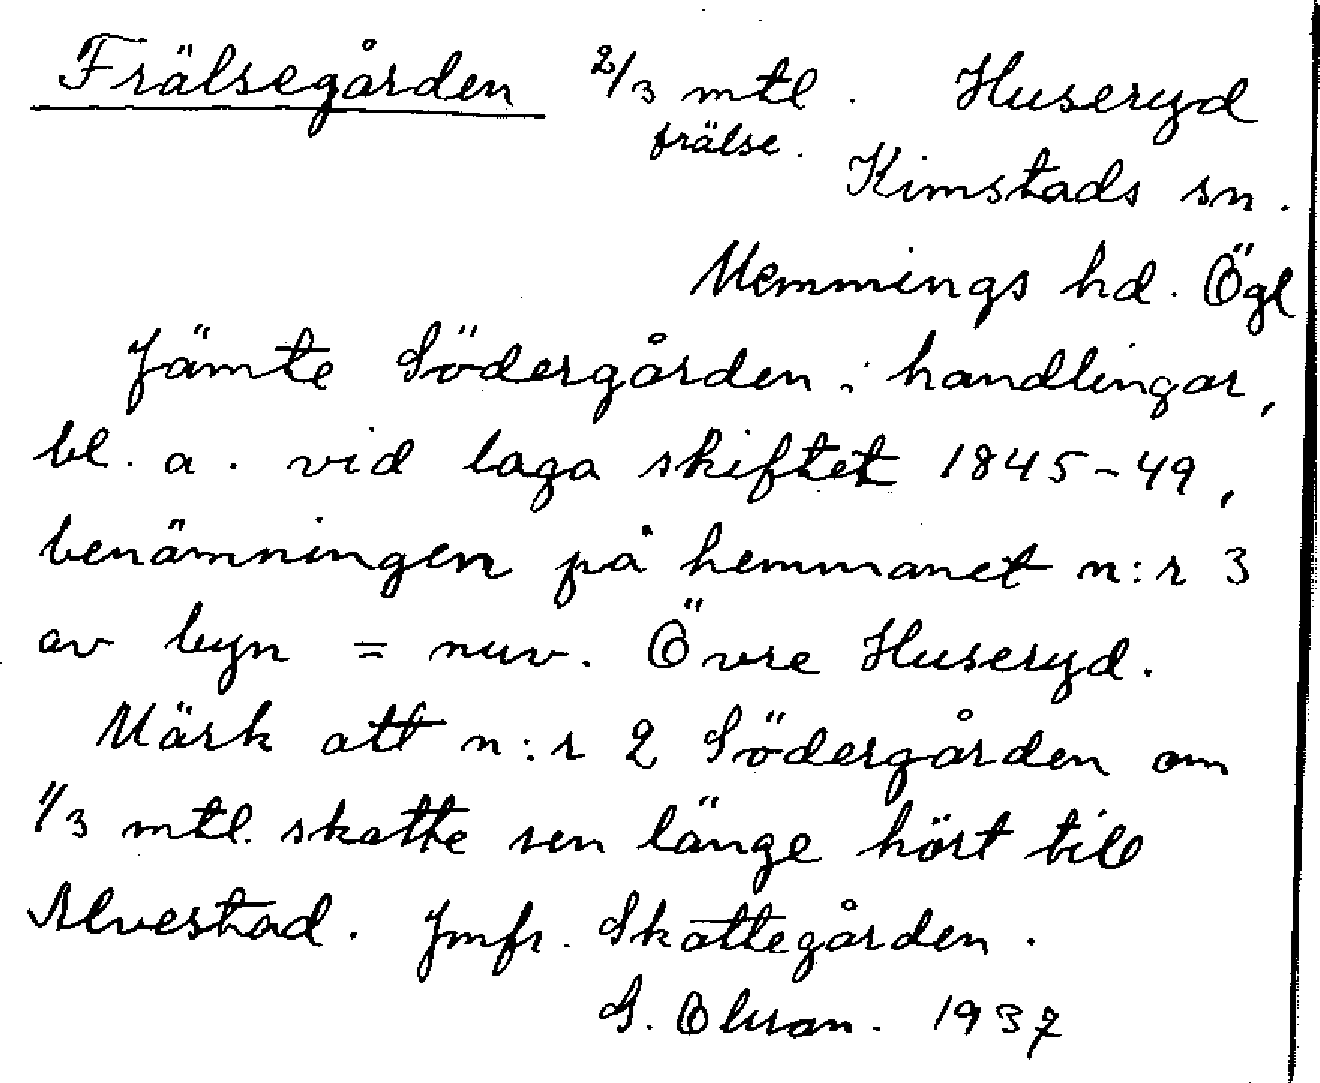 Frälsegården 2/3 mtl. Huseryd
frälse. Kimstads sn.
Memmings hd. Ögl
Jämte Södergården i handlingar,
bl. a. vid laga skiftet 1845-49,
benämningen på hemmanet n:r 3
av byn = nuv. Övre Huseryd.
Märk att n:r 2 Södergården om
1/3 mtl. skatte sen länge hört till
Alvestad. Jmfr. Skattegården.
S. Olsson. 1937